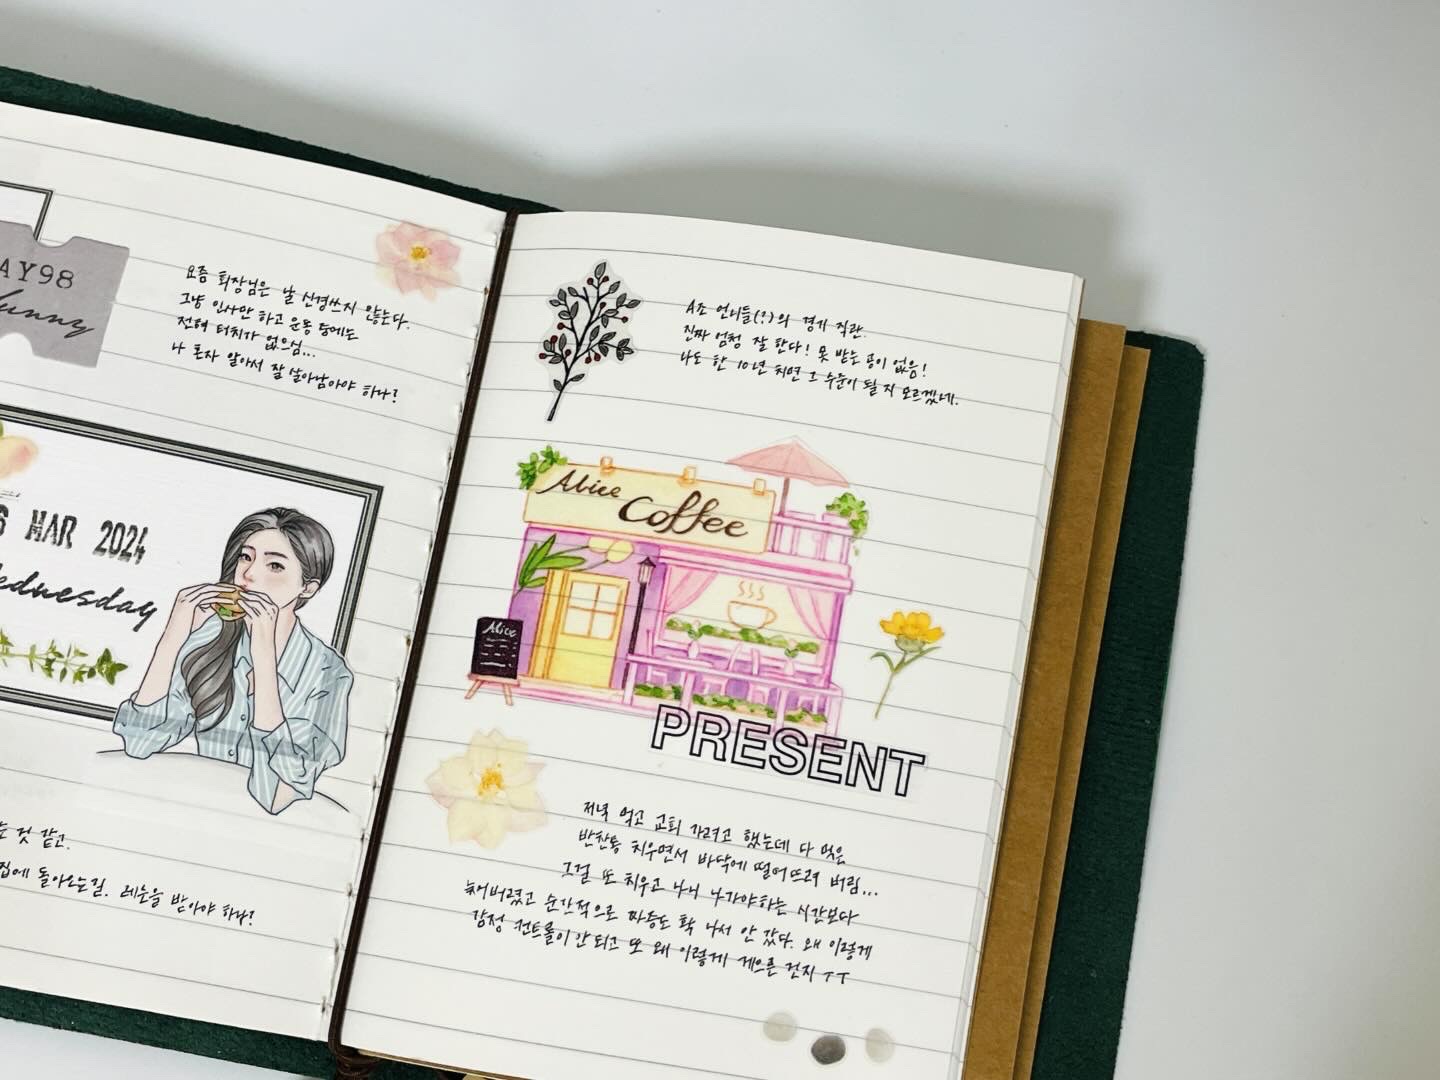 AY98
Sunny
요즘 회장님은 날 신경쓰지 않는다.
그냥 인사만 하고 운동 등에도
전혀 터치가 없으심...
나 혼자 알아서 잘 살아남아야 하나?
6 MAR 2024
Wednesday
는 것 같고.
집에 돌아오는길. 레슨을 받아야 하나?
A조 언니들(?)의 경기 직관.
진짜 엄청 잘 한다! 못 받는 공이 없음!
나도 한 10년 치면 그 수준이 될지 모르겠네.
Alice
Coffee
Alice
PRESENT
저녁 먹고 교회 가려고 했는데 다 먹은
반찬통 치우면서 바닥에 떨어뜨려 버림...
그걸 또 치우고 나니 나가야하는 시간보다
늦어버렸고 순간적으로 짜증도 확 나서 안 갔다. 왜 이렇게
감정 컨트롤이 안되고 또 왜 이렇게 게으른 건지 TT